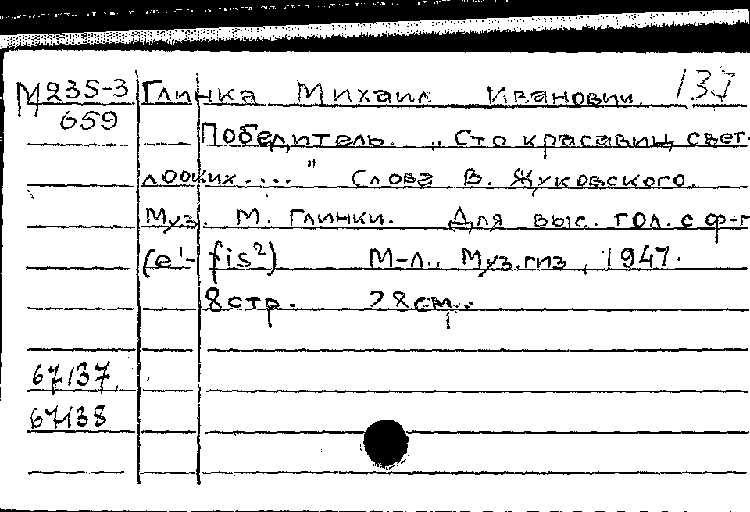 М235-3 Глинка Михаил Иванович 137
659
Победитель. „Сто красавиц свет-
лооких...." Слова В. Жуковского.
Муз. М. Глинки. Для выс. гол. с ф-п
(e¹- fis²) М-Л., Музгиз, 1947.
8 стр. 28 см.
67137,
67138